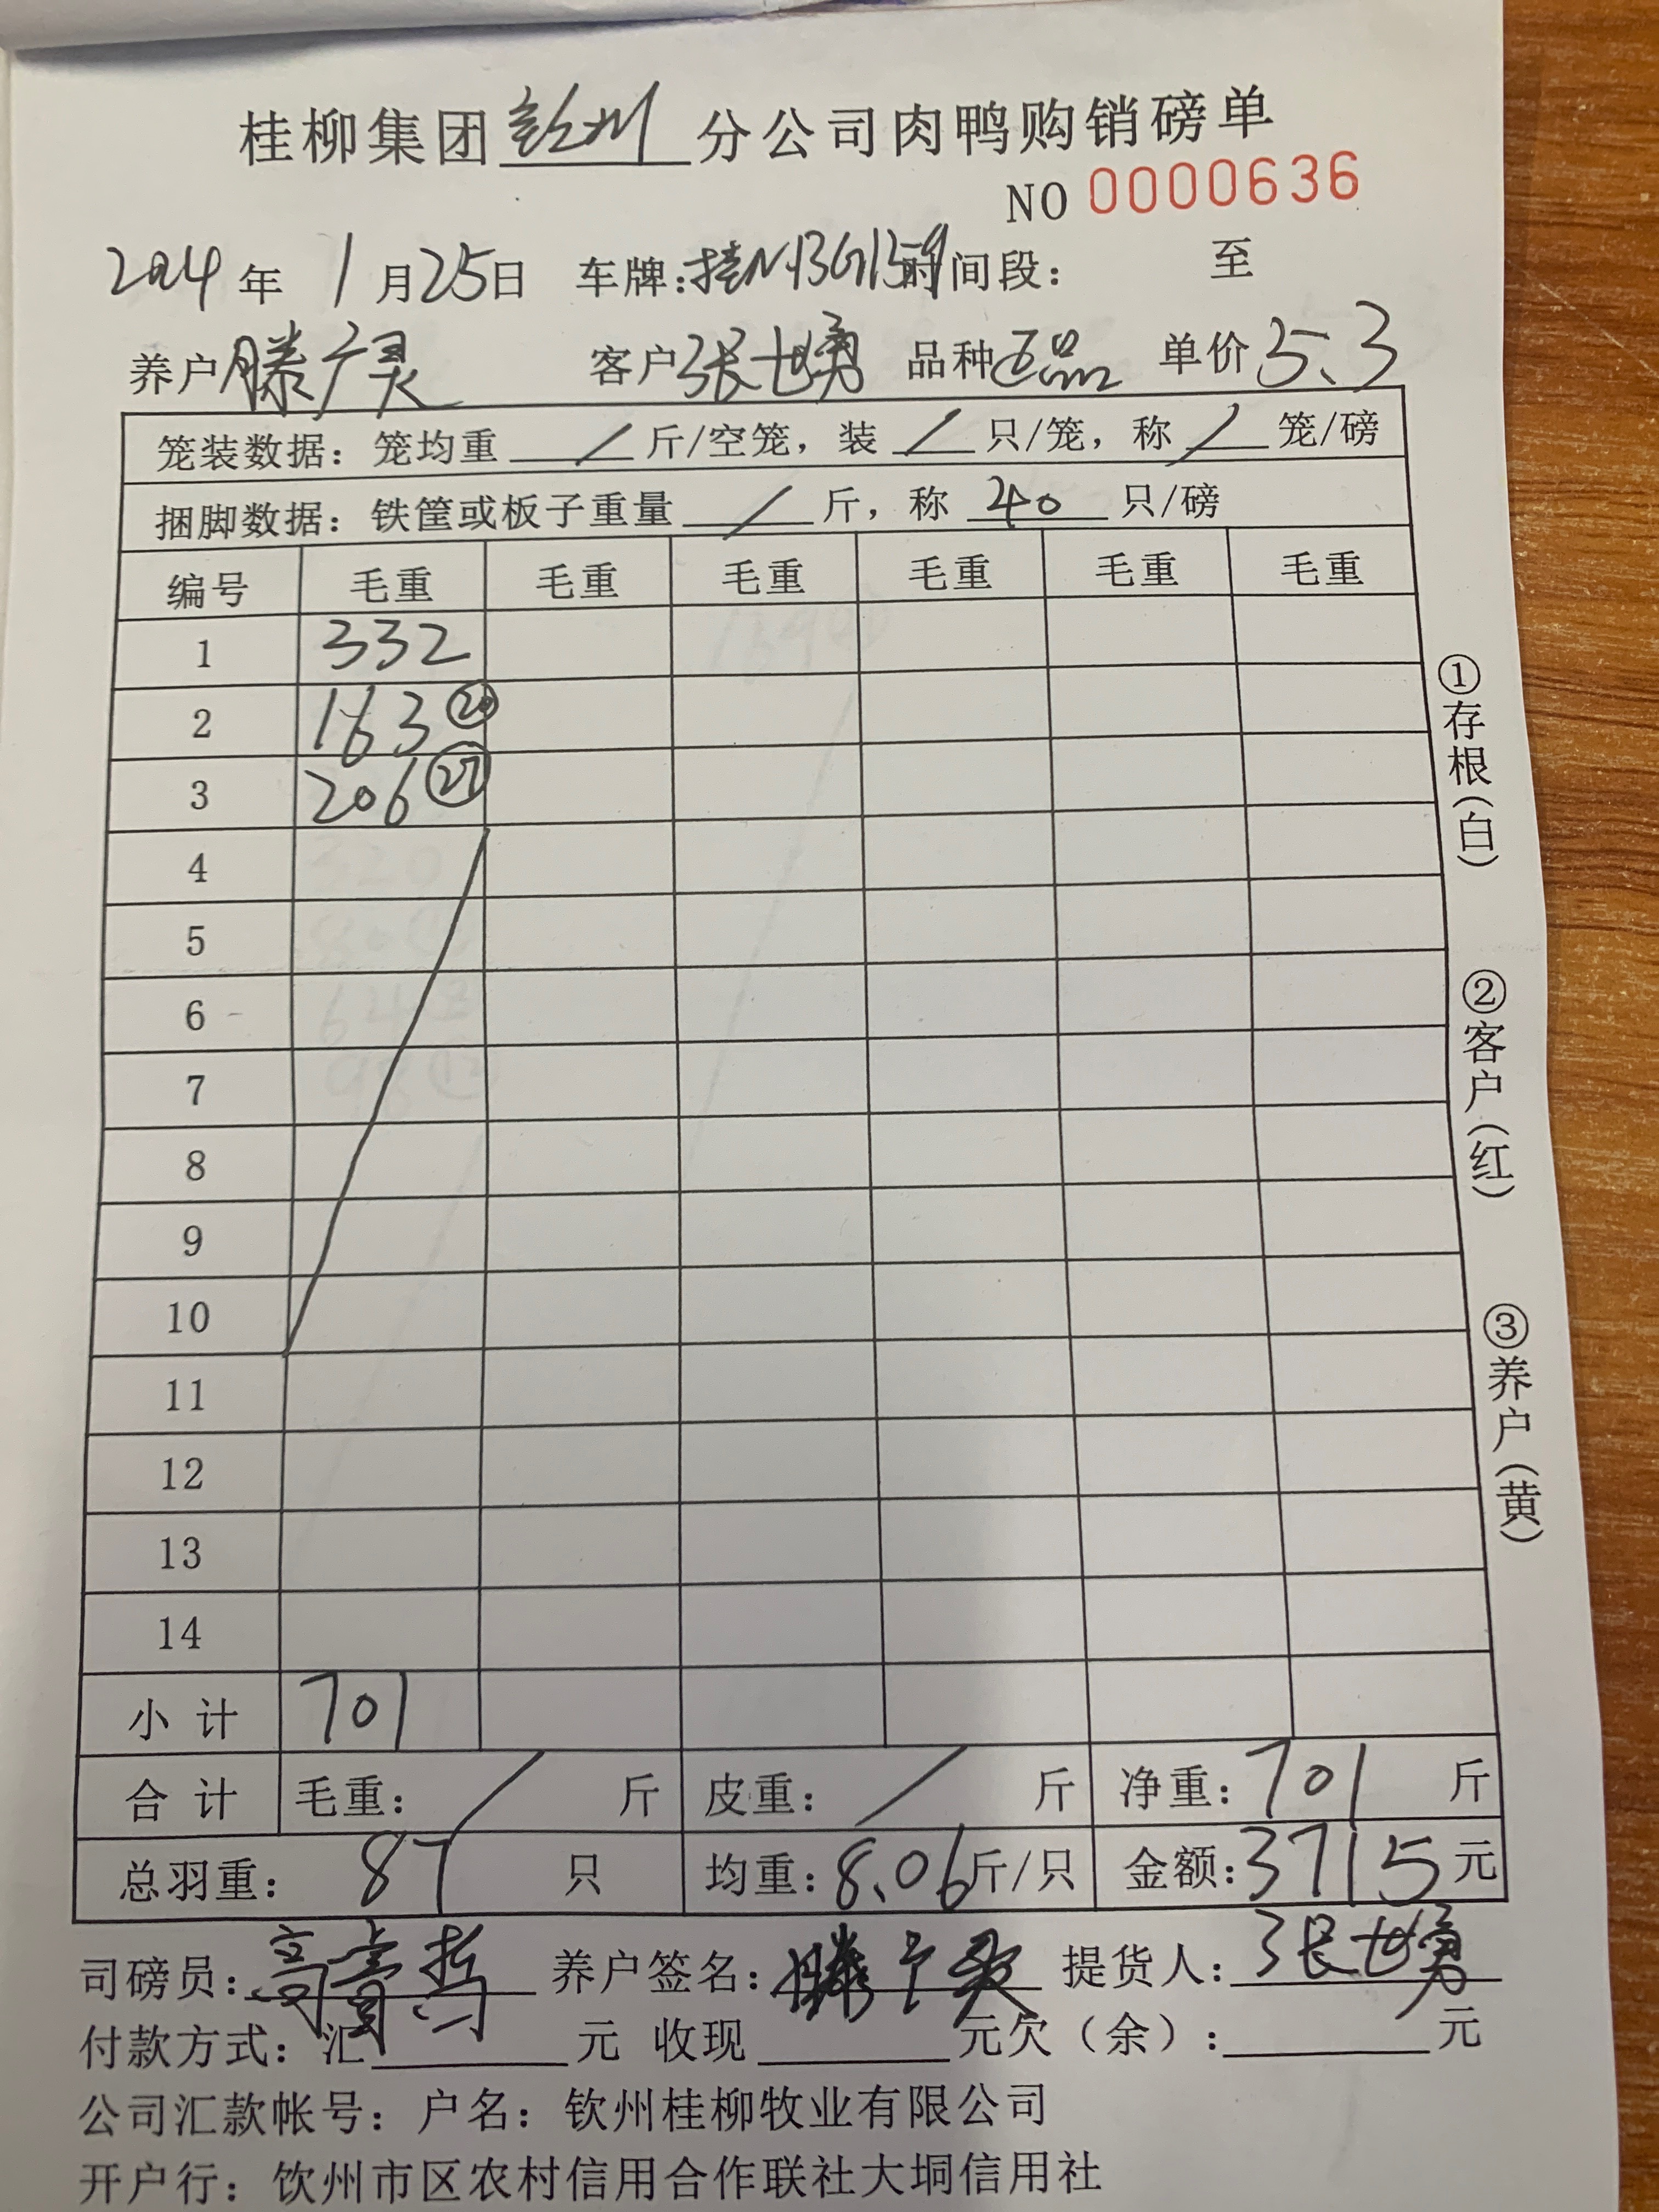 桂柳集团钦州分公司肉鸭购销磅单
NO 0000636
2024年1月25日 车牌:桂N·13G1159时间段: 至
养户滕广灵 客户张世勇 品种正品 单价5.3
笼装数据:笼均重 / 斤/空笼,装 / 只/笼,称 / 笼/磅
捆脚数据:铁筐或板子重量 / 斤,称 40 只/磅
编号 毛重 毛重 毛重 毛重 毛重 毛重
1 332
2 163 ⑳
3 206 ㉗
4
5
6
7
8
9
10
11
12
13
14
小计 701
合计 毛重: / 斤 皮重: / 斤 净重:701 斤
总羽重: 87 只 均重:8.06斤/只 金额:3715元
司磅员: 养户签名:滕广灵 提货人:张世勇
付款方式:汇 元 收现 元欠(余): 元
公司汇款帐号:户名:钦州桂柳牧业有限公司
开户行:钦州市区农村信用合作联社大垌信用社
①存根(白)
②客户(红)
③养户(黄)